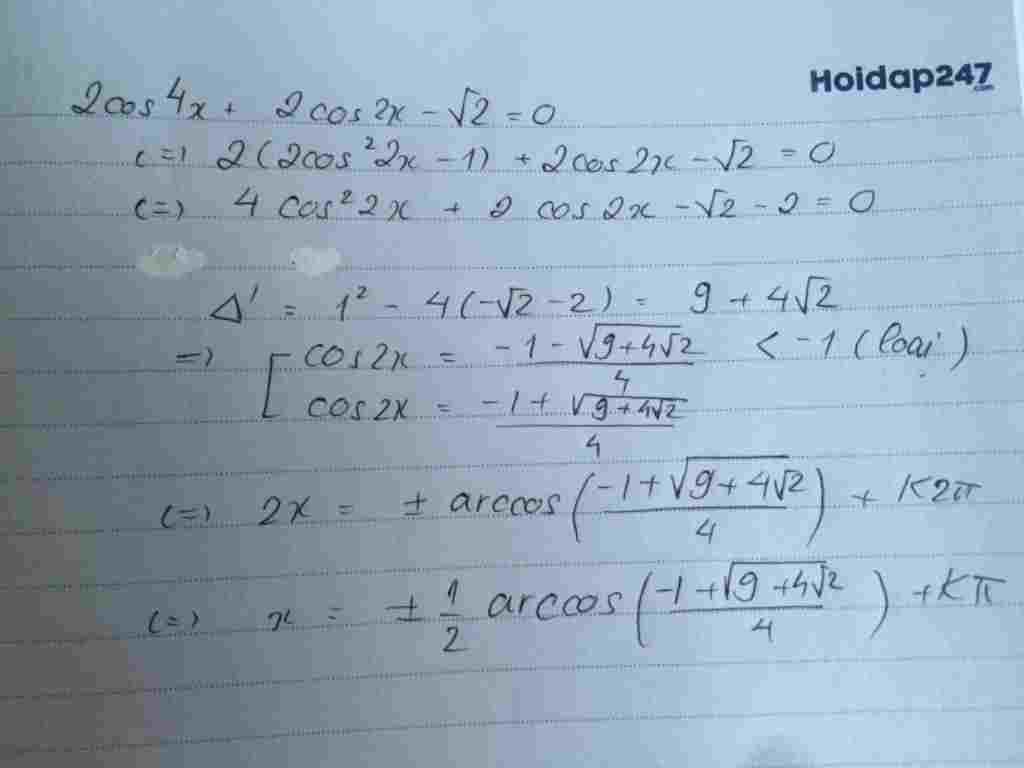 Hoidap247.com
2cos4x + 2cos2x - √2 = 0
(=) 2(2cos²2x - 1) + 2cos2x - √2 = 0
(=) 4 cos²2x + 2 cos2x - √2 - 2 = 0
Δ' = 1² - 4(-√2 - 2) = 9 + 4√2
=) [ cos2x = (-1 - √(9+4√2))/4 < -1 (loại)
cos2x = (-1 + √(9+4√2))/4
(=) 2x = ± arccos((-1 + √(9+4√2))/4) + K2π
(=) x = ± 1/2 arccos((-1 + √(9+4√2))/4) + Kπ